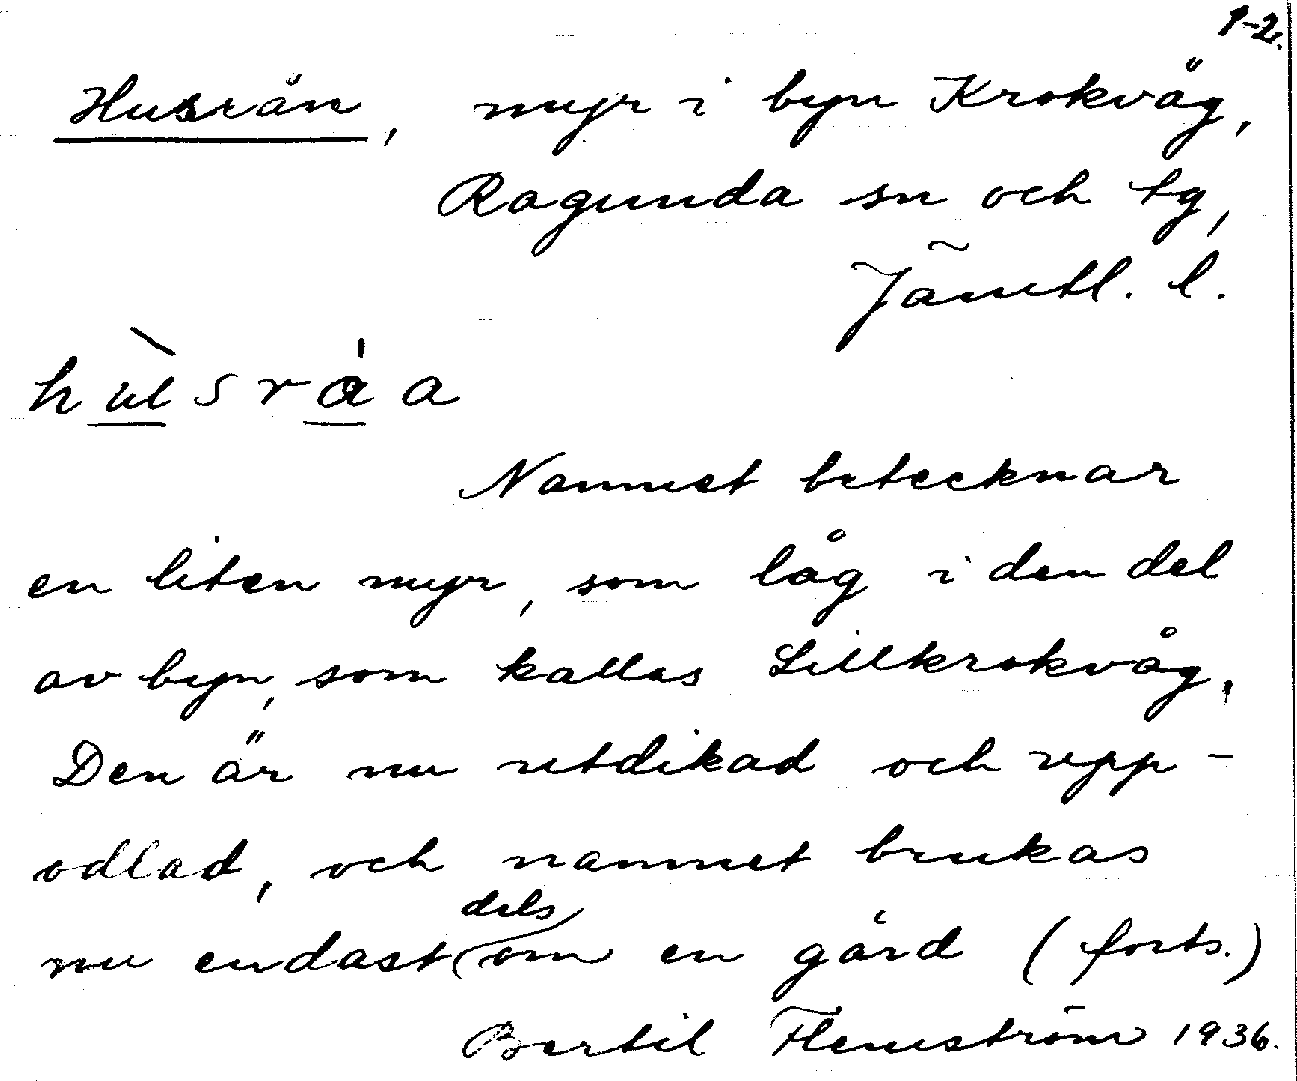 1-2.
Husrån, myr i byn Krokvåg,
Ragunda sn och tg,
Jämtl. l.
hùsråa
Namnet betecknar
en liten myr, som låg i den del
av byn, som kallas Lillkrokvåg.
Den är nu utdikad och upp-
odlad, och namnet brukas
nu endast dels om en gård (forts.)
Bertil Flemström 1936.